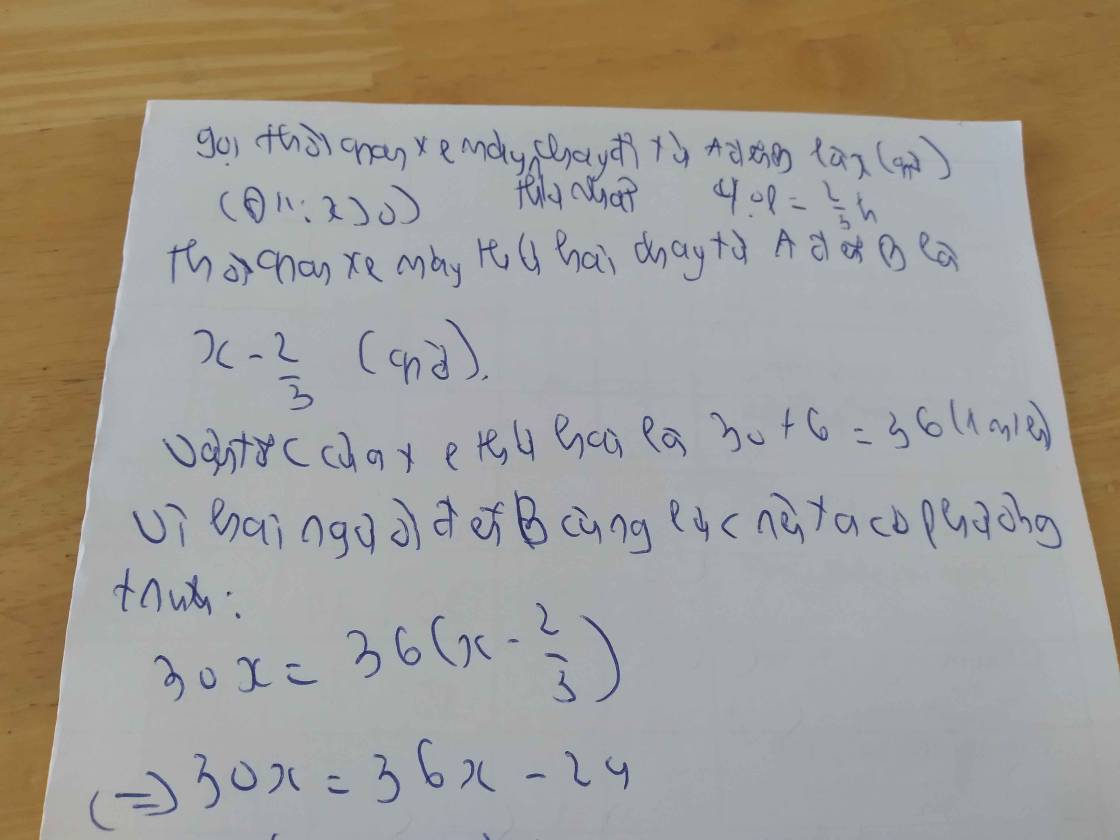 gọi thời gian xe máy chạy từ A đến B là x (giờ)
thứ nhất
(ĐK: x>0) 40p = 2/3 h
thời gian xe máy thứ hai chạy từ A đến B là
x - 2/3 (giờ).
Vận tốc của xe thứ hai là 30 + 6 = 36 (km/h)
Vì hai người đến B cùng lúc nên ta có phương
trình:
30x = 36(x - 2/3)
(=) 30x = 36x - 24